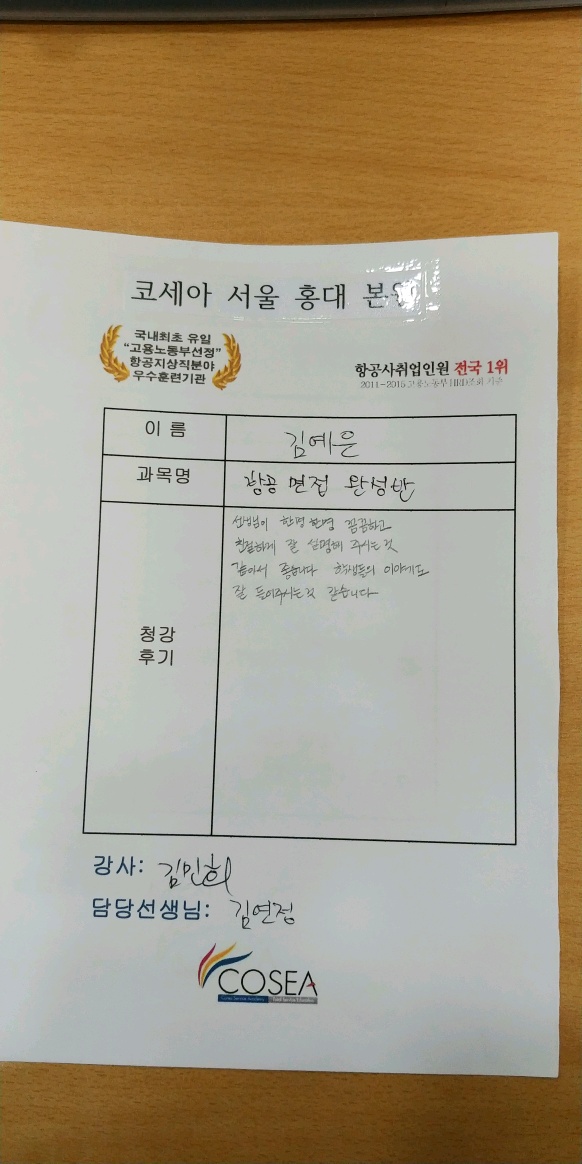 코세아 서울 홍대 본원
국내최초 유일
"고용노동부선정"
항공지상직분야
우수훈련기관
항공사취업인원 전국 1위
2011~2015 고용노동부 HRD조회 기준
이 름
김예은
과목명
항공 면접 완성반
청강
후기
선생님이 한명 한명 꼼꼼하고
친절하게 잘 설명해 주시는 것
같아서 좋습니다 학생들의 이야기도
잘 들어주시는것 같습니다
강사: 김민희
담당선생님: 김연정
COSEA